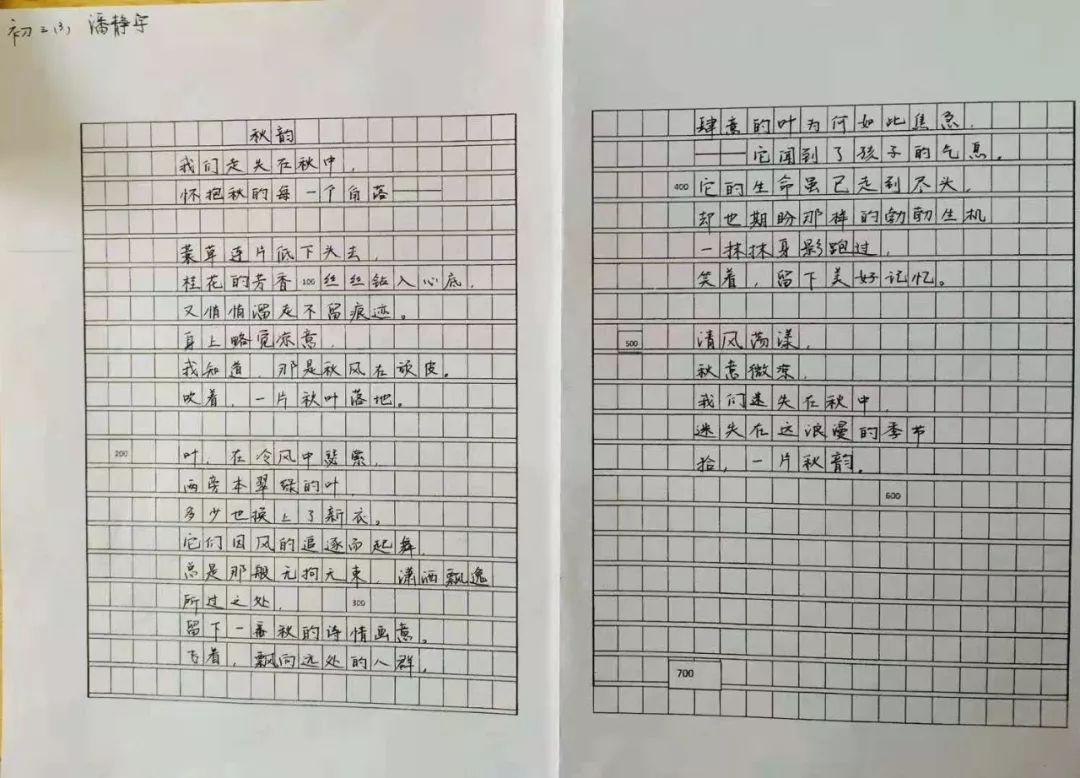 初三(3) 潘静宇
秋韵
我们走失在秋中，
怀抱秋的每一个角落——
蓑草连片低下头去，
桂花的芳香100丝丝钻入心底，
又悄悄溜走不留痕迹。
身上略觉凉意，
我知道，那是秋风在顽皮。
吹着，一片秋叶落地。
200 叶，在冷风中瑟索，
两旁本翠绿的叶，
多少也换上了新衣。
它们因风的追逐而起舞，
总是那般无拘无束，潇洒飘逸
所过之处， 300
留下一番秋的诗情画意。
飞着，飘向远处的人群，
肆意的叶为何如此焦急，
——它闻到了孩子的气息。
400 它的生命虽已走到尽头，
却也期盼那样的勃勃生机
一抹抹身影跑过，
笑着，留下美好记忆。
500 清风荡漾，
秋意微凉，
我们迷失在秋中，
迷失在这浪漫的季节
拾，一片秋韵。
600
700